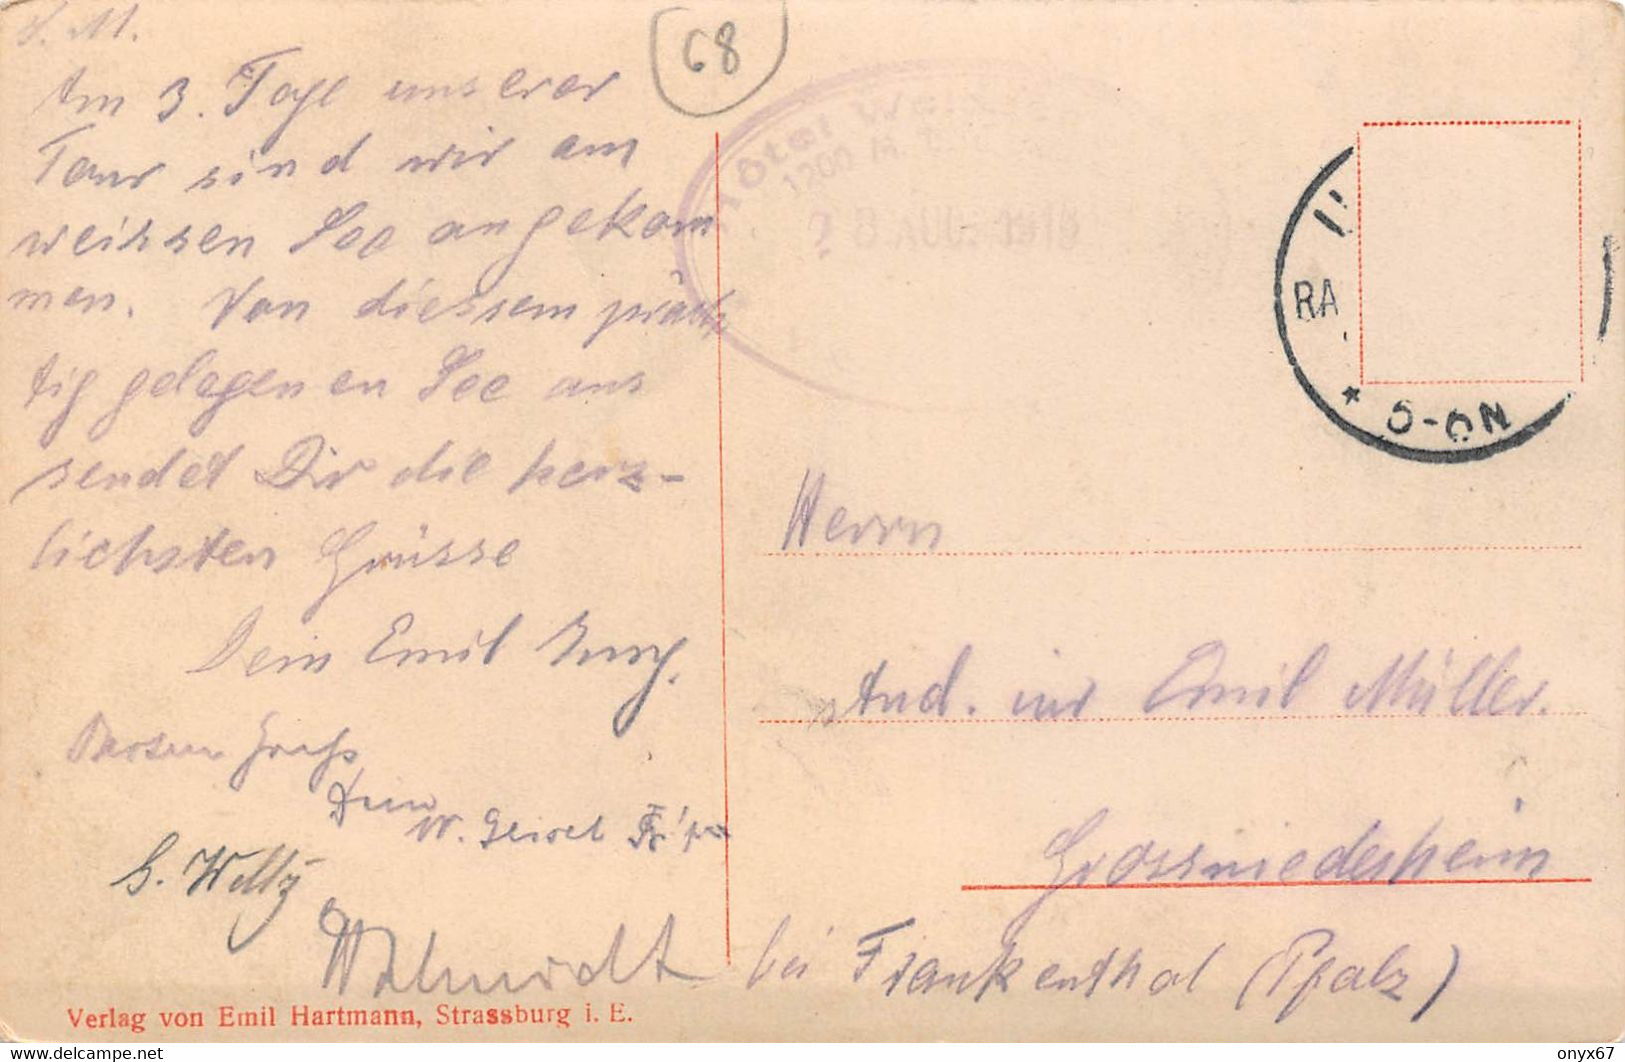 68
Am 3. Tage unserer
Tour sind wir am
weissen See angekom
men. Von diessem präch
tig gelegenen See aus
sendet Dir die herz-
lichsten Grüsse
Dein Emil
Gruß
Dein
W.
G. Weltz
Hôtel
1200 M.
8 AUG. 1918
RA
* 5-6N
Herrn
stud. iur Emil Müller.
Grossniedesheim
bei Frankenthal (Pfalz)
Verlag von Emil Hartmann, Strassburg i. E.
delcampe.net
onyx67